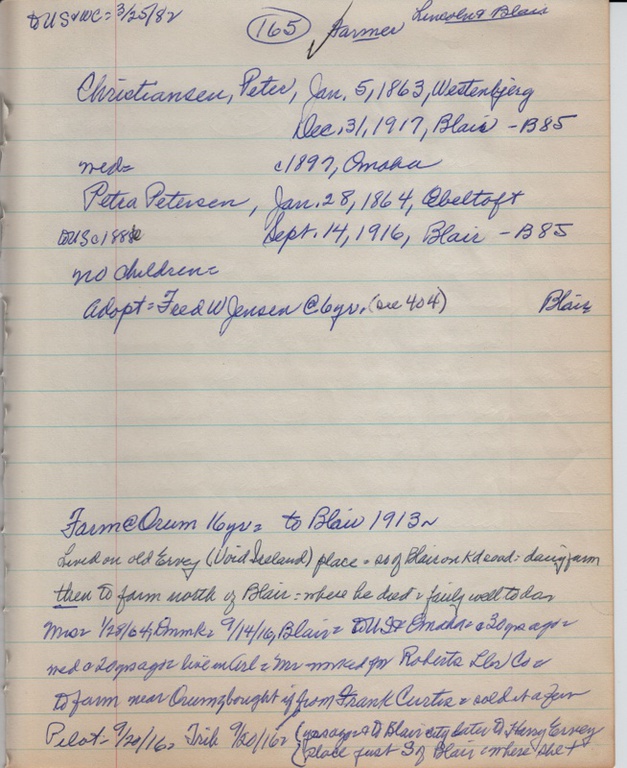 to US & WC = 3/25/82 165 Farmer Lincoln & Blair
Christiansen, Peter, Jan. 5, 1863, Westenbjerg
Dec. 31, 1917, Blair - B85
med= c1897, Omaha
Petra Petersen, Jan. 28, 1864, Ebeltoft
to US c1888 Sept. 14, 1916, Blair - B85
no children=
Adopt = Fred W Jensen @ 6yr. (see 404) Blair
Farm @ Orum 16yr = to Blair 1913
Lived on old Ervey place = so of Blair on road = dairy farm
then to farm north of Blair = where he died = fairly well to do
Mrs = 1/28/64, Denmk = 9/14/16, Blair = to US & Omaha = c30yrs ago =
med c20yrs ago = live in = Mr worked for Roberts Co =
to farm near Orum bought it from Frank Curtis = sold it a few
Pilot = 9/20/16 = Trib 9/20/16 = (yrs ago = to Blair city later to Henry Ervey
(place just S of Blair = where she +